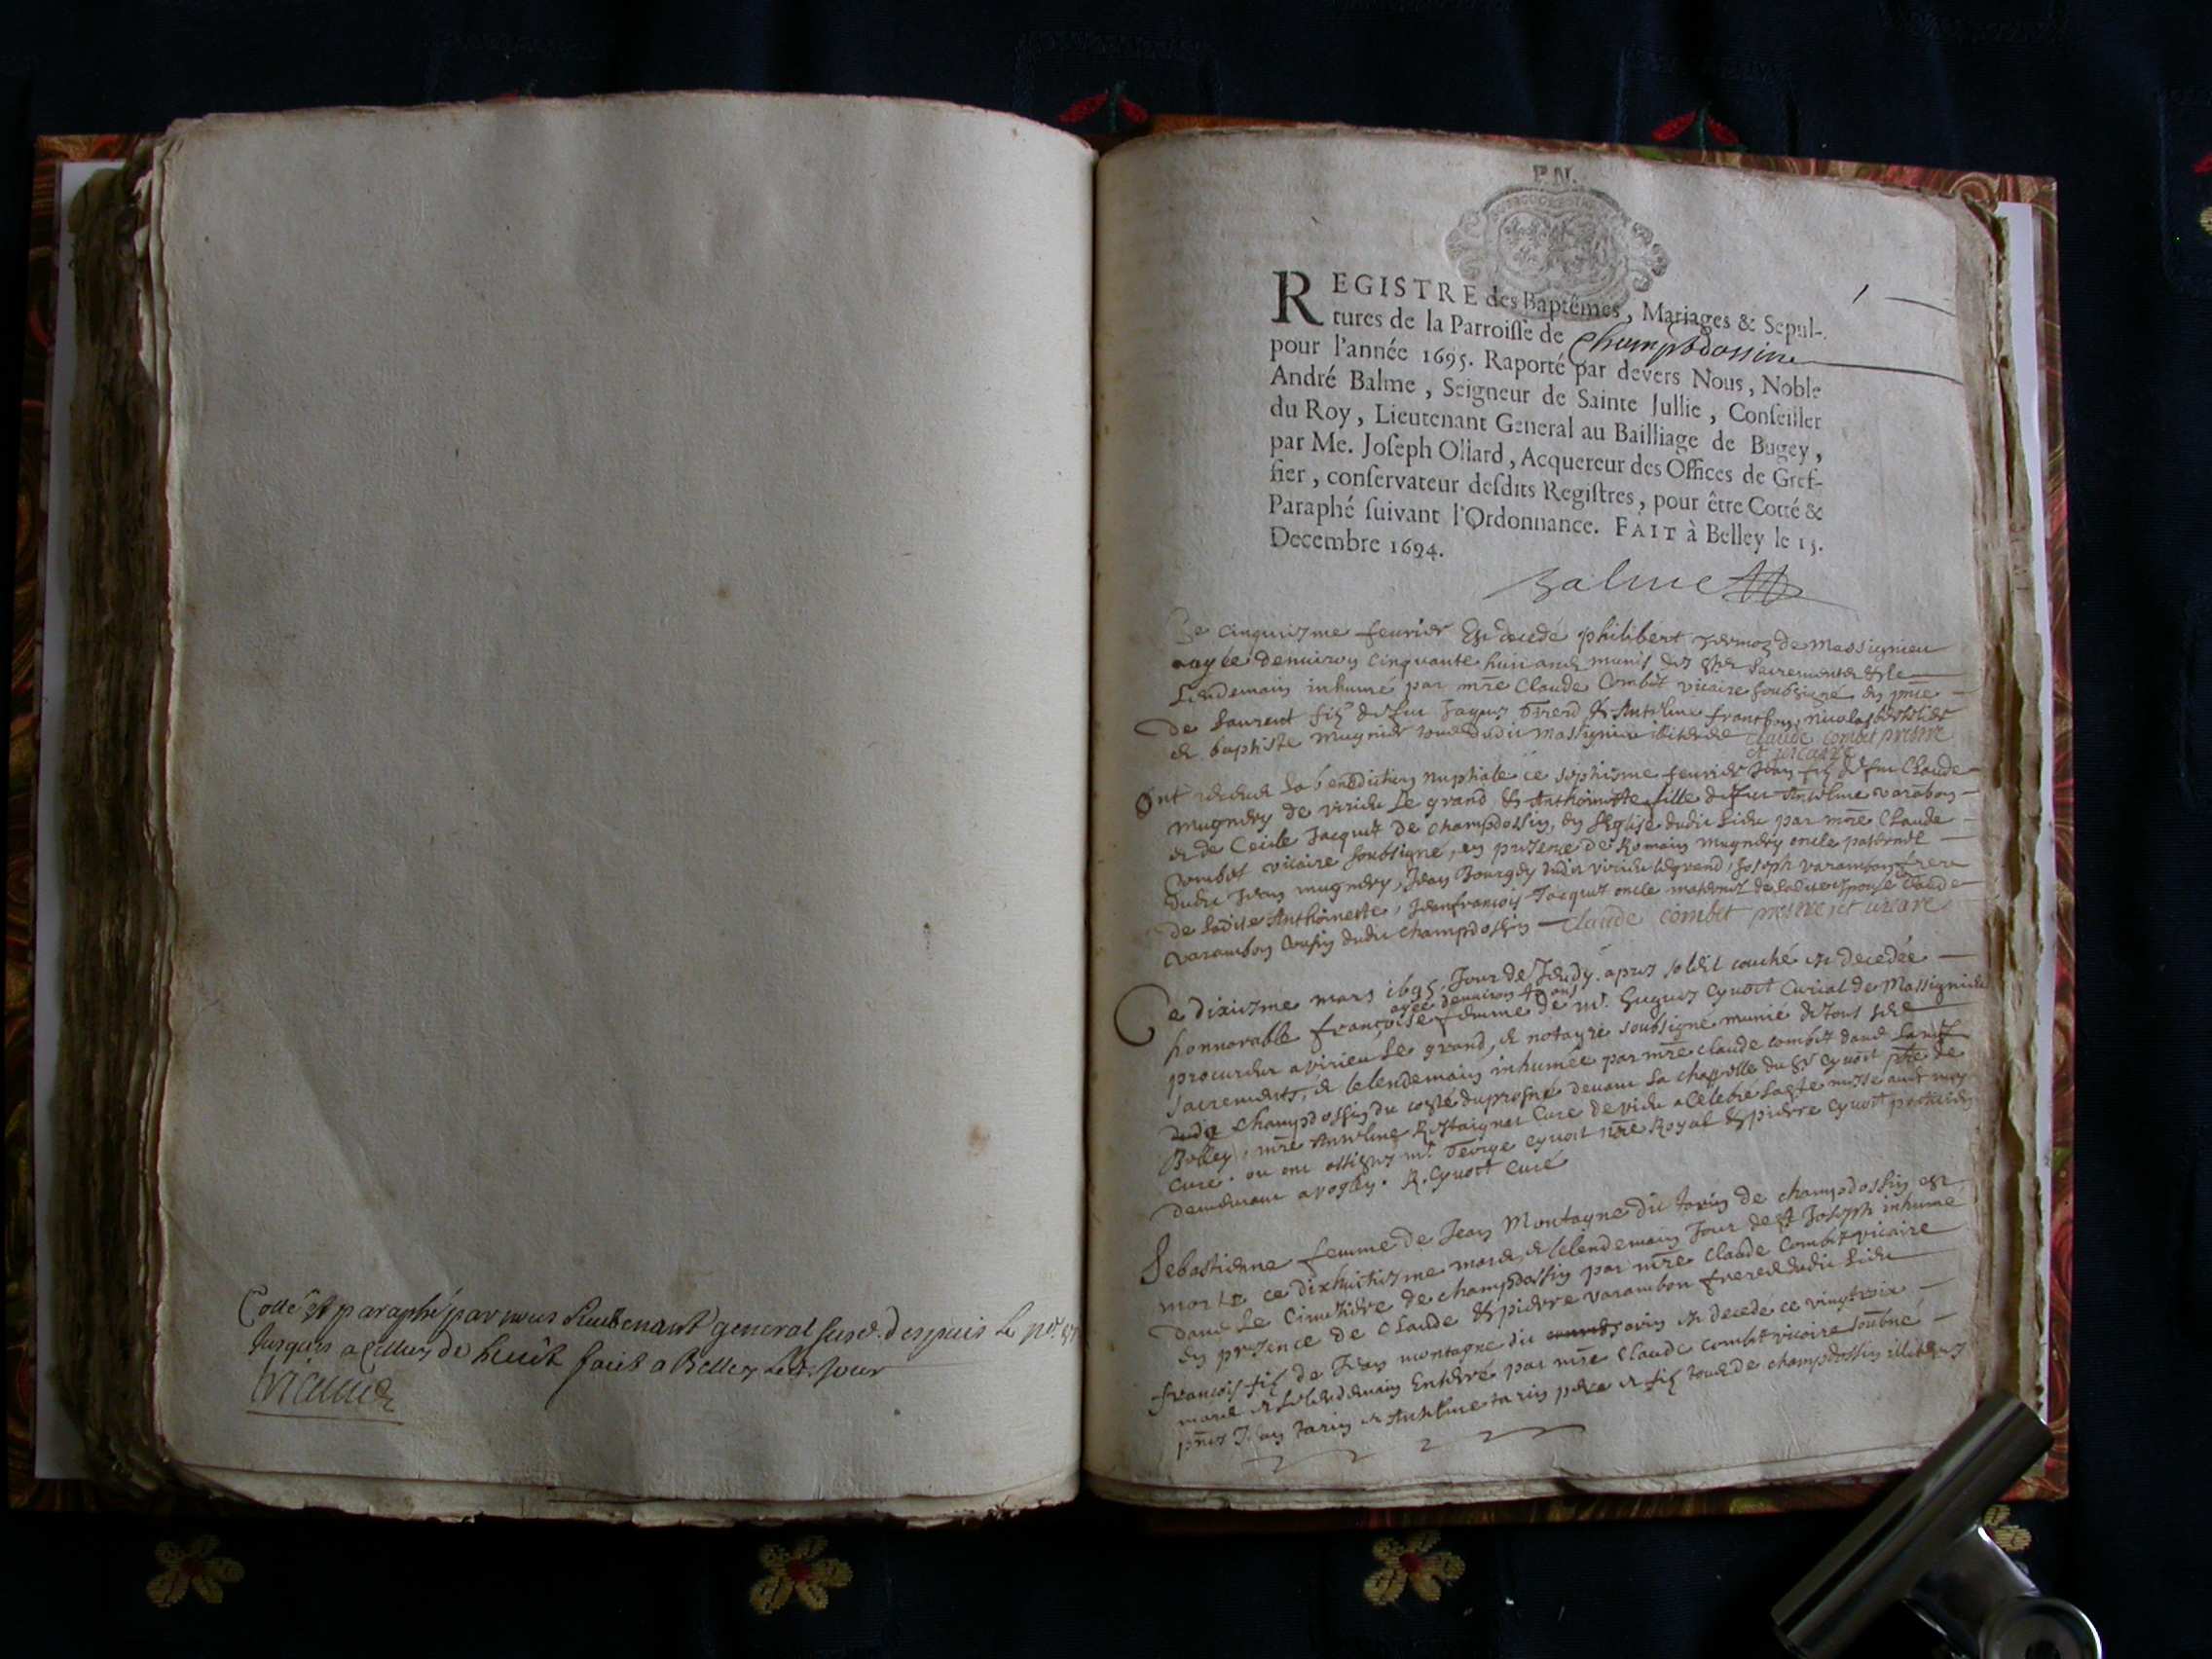 Cotté et paraphé par nous Lieutenant general susd. despuis le pr
jusques a celluy de huict faict a Belley led. jour
P.N.
REGISTRE des Baptêmes, Mariages & Sepul-
tures de la Parroisse de Champdossin
1
pour l'année 1695. Raporté par devers Nous, Noble
André Balme, Seigneur de Sainte Jullie, Conseiller
du Roy, Lieutenant General au Bailliage de Bugey,
par Me. Joseph Ollard, Acquereur des Offices de Gref-
fier, conservateur desdits Registres, pour être Cotté &
Paraphé suivant l'Ordonnance. FAIT à Belley le 15.
Decembre 1694.
Balme
Ce cinquiesme feurier Est decedé philibert de Massignieu
aagée denuiron cinquante huict ans munis des sts sacrements & le
Lendemain inhumé par mre Claude Combet vicaire soubsigné en pnce
De Laurent fils de feu Jaques & Anthelme francson, nicolas
& baptiste mugnier tous dudit Massignieu illiteres Claude combet prestre
et vicaire
Ont receus la benediction nuptiale ce septiesme feurier Jean fils de feu Claude
mugnery de virieu le grand & Anthoinette fille de feu Anthelme varambon
& de Cecile Jacquet de champdossin, en l'Eglise dudit lieu par mre Claude
Combet vicaire soubsigné, en presence de Romain mugnery oncle paternel
dudit Jean mugnery, Jean Bourgey dudit virieu legrand, Joseph varambon frere
de ladite Anthoinette, Jeanfrançois Jacquet oncle maternel de ladite espouse Claude
varambon cousin dudit champdossin Claude combet prestre et vicaire
Ce dixiesme mars 1695. Jour de Jeudy. apres soleil couché est decedée
aagée denuiron 40 ans
honnorable françoise femme de mr. Hugues Cyvoct Curial de Massignieu
procureur a virieu le grand, & notayre soubsigné munie de tous ses
sacrements, & lelendemain inhumée par mre Claude combet dans la nef
dudit champdossin du costé du prosne devant la chappelle du Sr Cyvoct pbre de
Belley, mre Anthelme Rostaignat Curé de vieu a celebré la ste messe avec moy
Curé. ou ont assistez mr. George Cyvoct nre Royal & pierre Cyvoct
demeurant a rogley. R. Cyvoct Curé
Sebastienne femme de Jean Montagne dit tarin de champdossin est
morte ce dixhuictiesme mars, & lelendemain Jour de st Joseph inhumé
dans le Cimetiere de champdossin par mre Claude Combet vicaire
en presence de Claude & pierre varambon freres dudit lieu
françois fils de Jean montagne dit tarin est decedé ce vingtroix
mars & lelendemain Enterré par mre Claude combet vicaire soubné
pnts Jean tarin & Anthelme tarin pere & fils tous de champdossin illiteres